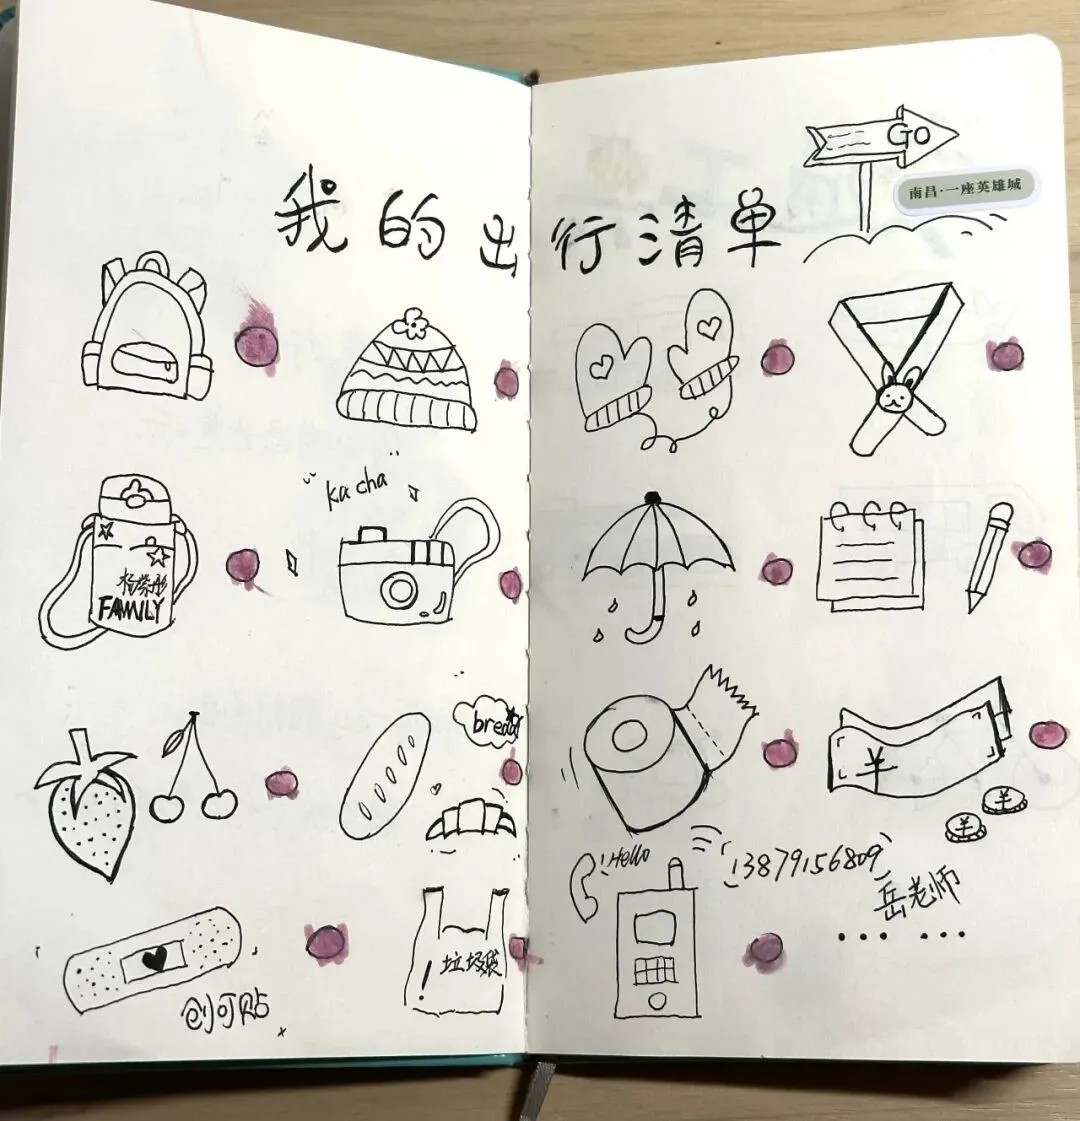 GO
南昌·一座英雄城
我的出行清单
"kacha"
杨紫彤
FAMILY
¥
bread
¥
¥
Hello
13879156809
岳老师
......
垃圾袋
创可贴